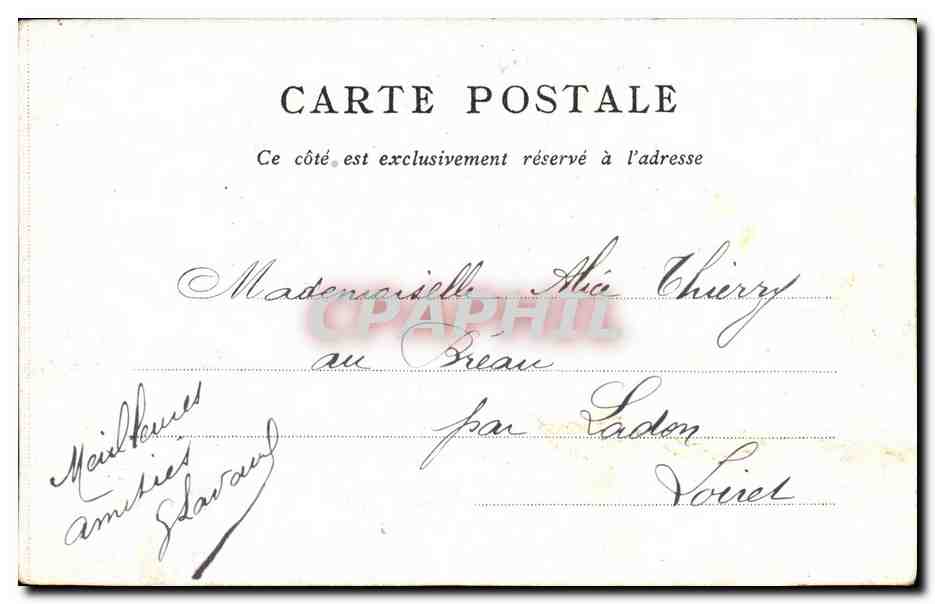 CARTE POSTALE
Ce côté est exclusivement réservé à l'adresse
Mademoiselle Alice Thierry
CPAPHIL
au Bréau
par Ladon
Loiret
Meilleures
amitiés